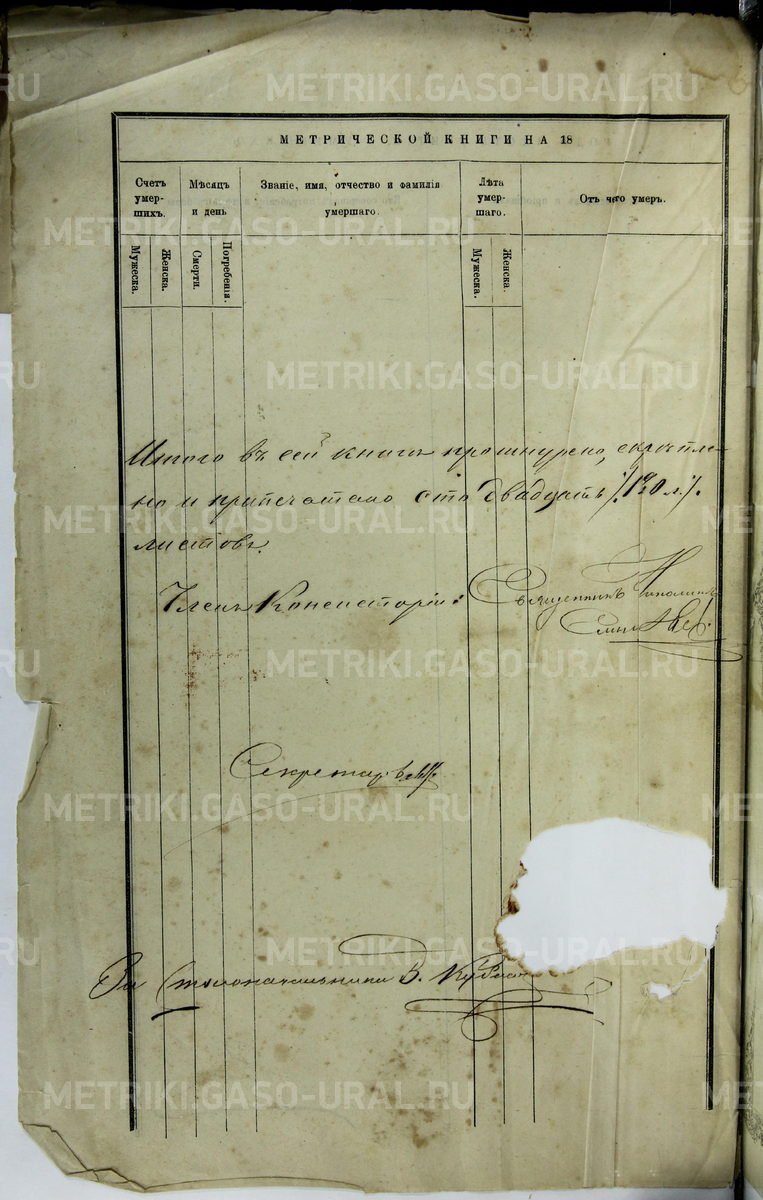 МЕТРИЧЕСКОЙ КНИГИ НА 18
Счетъ умер-шихъ.
Мѣсяцъ и день
Званіе, имя, отчество и фамилія умершаго.
Лѣта умер-шаго.
Отъ чего умеръ.
Мужеска.
Женска.
Смерти.
Погребенія.
Мужеска.
Женска.
Итого въ сей книгѣ прошнурено, скрѣпле-
но и припечатано сто двадцать /:120 л:/.
листовъ.
Членъ Консисторіи: Священникъ
Секретарь
За Столоначальника В.
METRIKI.GASO-URAL.RU